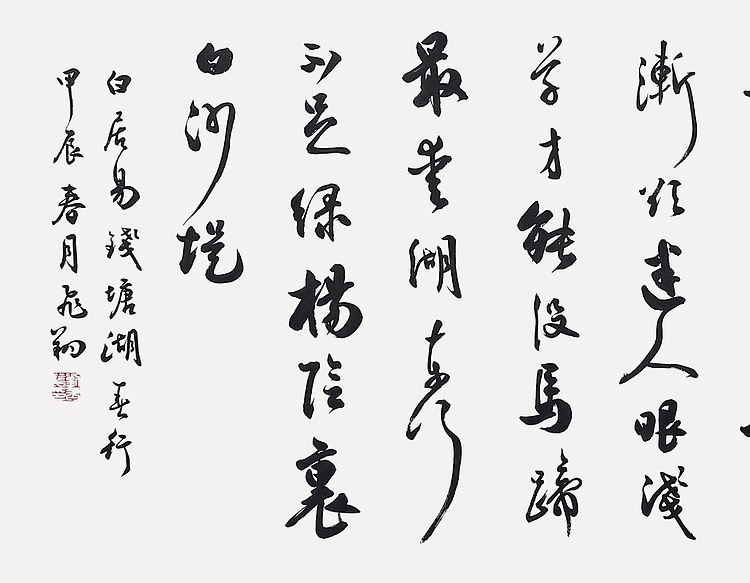 漸欲迷人眼淺
草才能没馬蹄
最愛湖東行
不足绿楊陰裏
白沙堤
白居易錢塘湖春行
甲辰春月飛翔